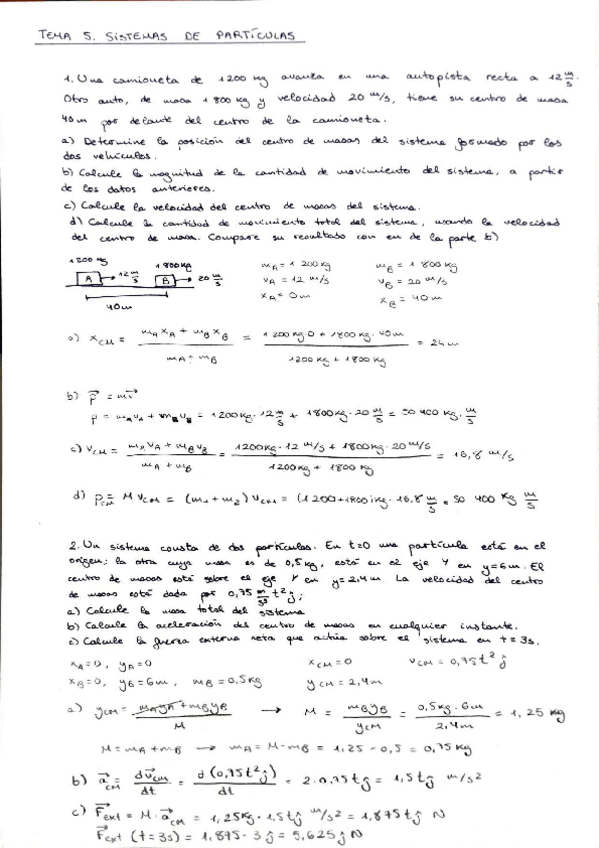 TEMA 5. SISTEMAS DE PARTÍCULAS
1. Una camioneta de 1200 kg avanza en una autopista recta a 12 m/s.
Otro auto, de masa 1800 kg y velocidad 20 m/s, tiene su centro de masa
40 m por delante del centro de la camioneta.
a) Determine la posición del centro de masas del sistema formado por los
dos vehículos.
b) Calcule la magnitud de la cantidad de movimiento del sistema, a partir
de los datos anteriores.
c) Calcule la velocidad del centro de masas del sistema.
d) Calcule la cantidad de movimiento total del sistema, usando la velocidad
del centro de masa. Compare su resultado con en de la parte b)
1200 kg 1800 kg mA = 1200 kg mB = 1800 kg
A → 12 m/s B → 20 m/s vA = 12 m/s vB = 20 m/s
40 m xA = 0 m xB = 40 m
a) xCM = (mA xA + mB xB) / (mA + mB) = (1200 kg · 0 + 1800 kg · 40 m) / (1200 kg + 1800 kg) = 24 m
b) p⃗ = mv⃗
p = mA vA + mB vB = 1200 kg · 12 m/s + 1800 kg · 20 m/s = 50 400 kg · m/s
c) vCM = (mA vA + mB vB) / (mA + mB) = (1200 kg · 12 m/s + 1800 kg · 20 m/s) / (1200 kg + 1800 kg) = 16,8 m/s
d) pCM = M vCM = (m1 + m2) vCM = (1200 + 1800) kg · 16,8 m/s = 50 400 kg m/s
2. Un sistema consta de dos partículas. En t=0 una partícula está en el
origen; la otra cuya masa es de 0,5 kg, está en el eje Y en y=6m. El
centro de masas está sobre el eje Y en y=2,4m La velocidad del centro
de masas está dada por 0,75 m/s³ t² ĵ;
a) Calcule la masa total del sistema
b) Calcule la aceleración del centro de masas en cualquier instante.
c) Calcule la fuerza externa neta que actúa sobre el sistema en t = 3s.
xA = 0, yA = 0 xCM = 0 vCM = 0,75 t² ĵ
xB = 0, yB = 6m, mB = 0,5 kg yCM = 2,4 m
a) yCM = (mA yA + mB yB) / M → M = mB yB / yCM = 0,5 kg · 6m / 2,4 m = 1,25 kg
M = mA + mB → mA = M - mB = 1,25 - 0,5 = 0,75 kg
b) a⃗CM = dv⃗CM / dt = d(0,75 t² ĵ) / dt = 2 · 0,75 t ĵ = 1,5 t ĵ m/s²
c) F⃗ext = M · a⃗CM = 1,25 kg · 1,5 t ĵ m/s² = 1,875 t ĵ N
F⃗ext (t = 3s) = 1,875 · 3 ĵ = 5,625 ĵ N